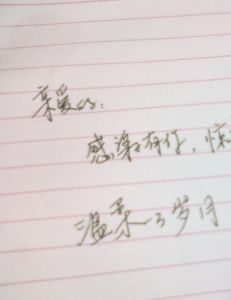 亲爱的：
感谢有你，惊
温柔了岁月